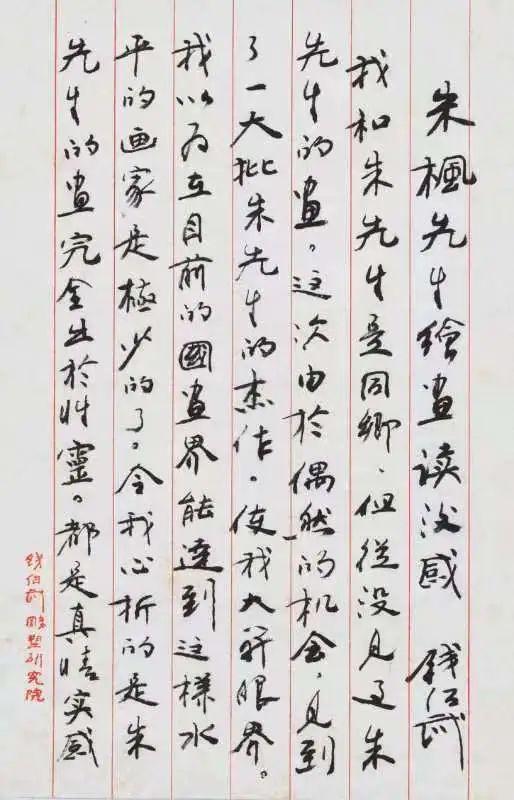 朱楓先生繪畫读後感 錢绍武
我和朱先生是同鄉、但從没見过朱
先生的畫。这次由於偶然的机会,見到
了一大批朱先生的杰作。使我大开眼界。
我以为在目前的國畫界能達到这樣水
平的画家是極少的了。令我心折的是朱
先生的畫完全出於性靈。都是真情实感
錢绍武雕塑研究院